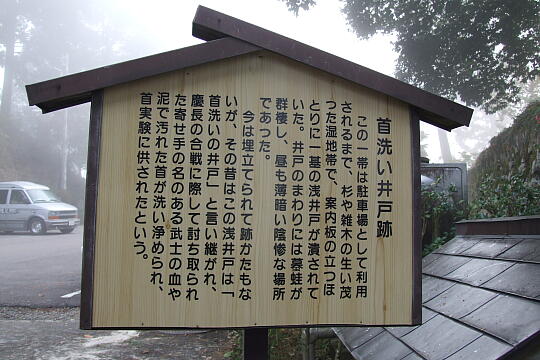 首洗い井戸跡
この一帯は駐車場として利用
されるまで、杉や雑木の生い茂
った湿地帯で、案内板の立つほ
とりに一基の浅井戸が潰されて
いた。井戸のまわりには蟇蛙が
群棲し、昼も薄暗い陰惨な場所
であつた。
今は埋立てられて跡かたもな
いが、その昔はこの浅井戸は「
首洗いの井戸」と言い継がれ、
慶長の合戦に際して討ち取られ
た寄せ手の名のある武士の血や
泥で汚れた首が洗い浄められ、
首実験に供されたという。